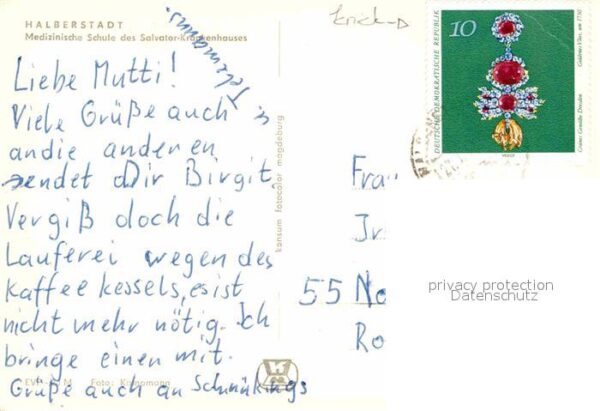 HALBERSTADT
Medizinische Schule des Salvator-Krankenhauses
Liebe Mutti!
Viele Grüße auch
an die anderen
sendet Dir Birgit.
Vergiß doch die
Lauferei wegen des
Kaffeekessels, es ist
nicht mehr nötig. Ich
bringe einen mit.
Grüße auch an
konsum fotocolor magdeburg
Foto:
Frau
55 No
Ro
10
DEUTSCHE DEMOKRATISCHE REPUBLIK
Goldenes Vlies, um 1750
Grünes Gewölbe Dresden
privacy protection
Datenschutz